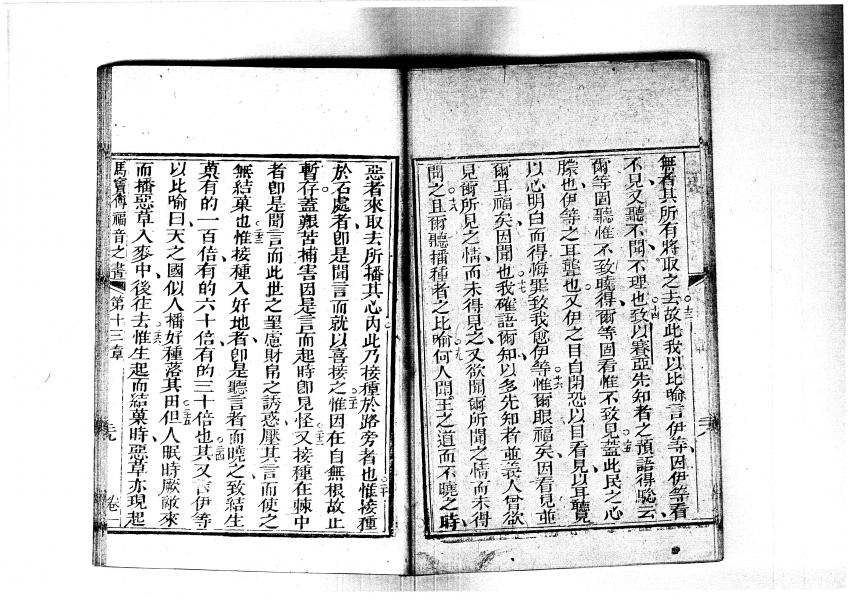 無者其所有將取之去○十三故此我以比喻言伊等因伊等看
不見又聽不聞不理也○十四致以賽亞先知者之預語得驗云
爾等固聽惟不致曉得爾等固看惟不致見○十五蓋此民之心
朦也伊等之耳聾也又伊之目自閉恐以目看見以耳聽見
以心明白而得悔罪致我愈伊等○十六惟爾眼福矣因看見並
爾耳福矣因聞也○十七我確語爾知以多先知者並義人曾欲
見爾所見之情而未得見之又欲聞爾所聞之情而未得
聞之○十八且爾聽播種者之比喻○十九何人聞王之道而不曉之時
惡者來取去所播其心內此乃接種於路旁者也○二十惟接種
於石處者卽是聞言而就以喜接之○二一惟因在自無根故止
暫存蓋艱苦捕害因是言而起時卽見怪○二二又接種在棘中
者卽是聞言而此世之罣慮財帛之誘惑壓其言而使之
無結菓也○二三惟接種入好地者卽是聽言者而曉之致結生
菓有的一百倍有的六十倍有的三十倍也○二四其又言伊等
以此喻曰天之國似人播好種落其田○二五但人眠時厥敵來
而播惡草入麥中後往去○二六惟生起而結菓時惡草亦現起
馬竇傳福音之書 第十三章 卷一